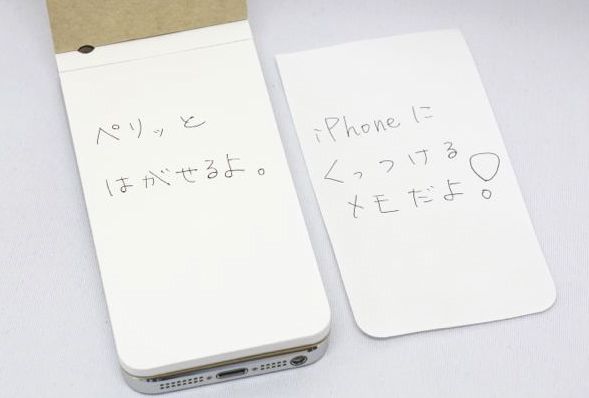 ペリッと
はがせるよ。
iPhoneに
くっつける
メモだよ!